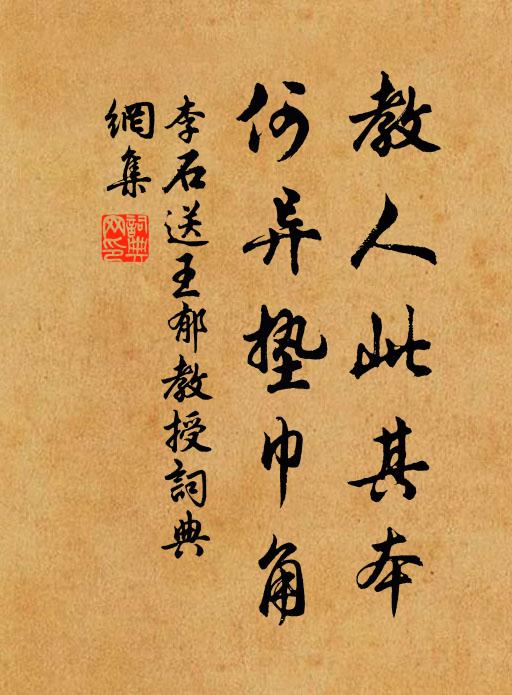 教人此其本
何异垫巾角
李石送王郁教授詞典
網集
詞典
网印